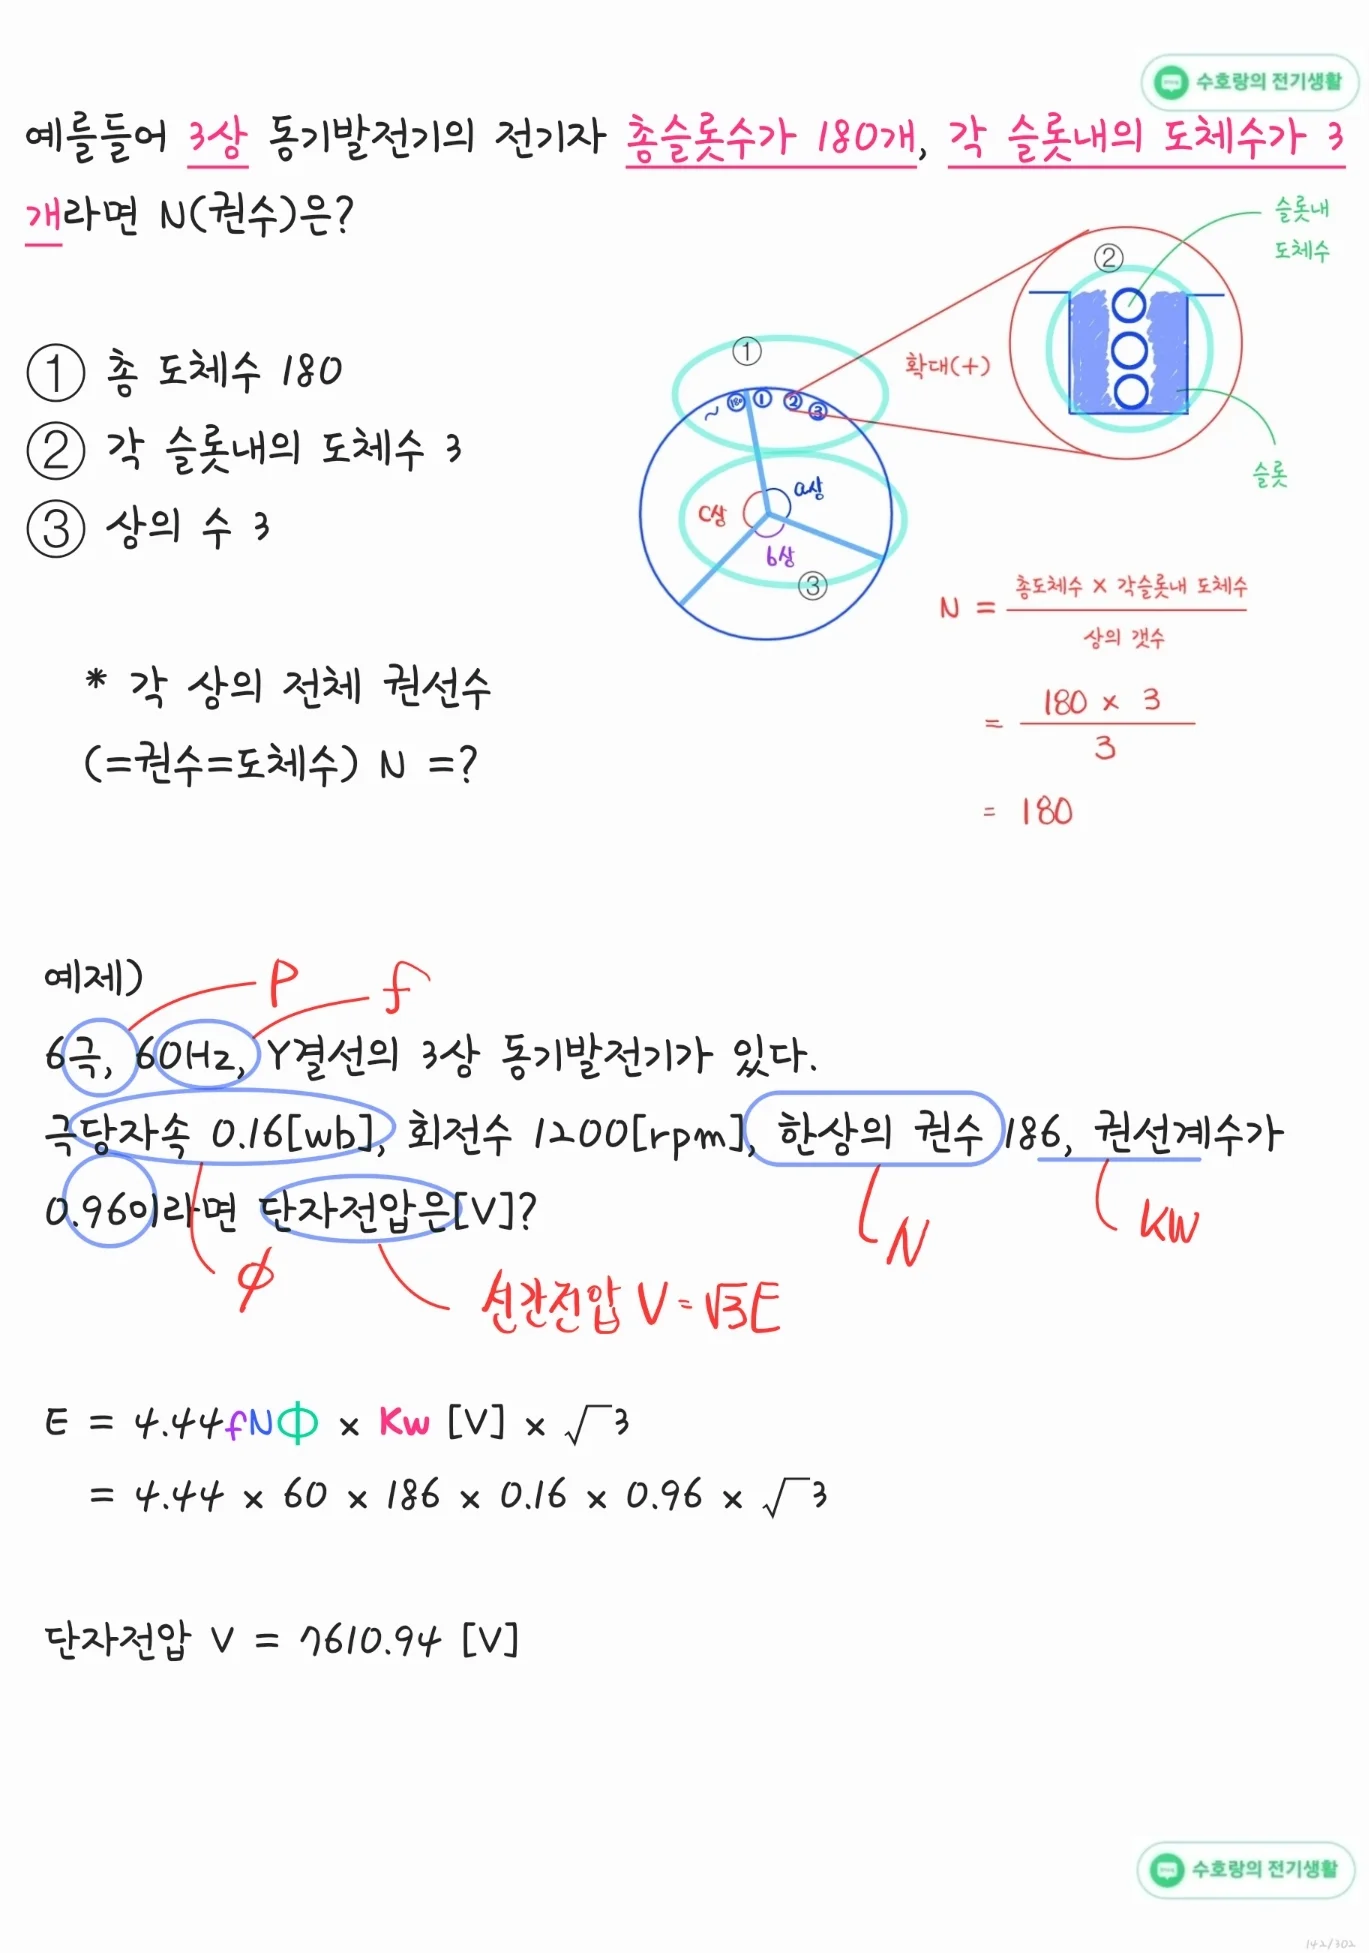 수호랑의 전기생활
예를들어 3상 동기발전기의 전기자 총슬롯수가 180개, 각 슬롯내의 도체수가 3
개라면 N(권수)은?
슬롯내
도체수
②
① 총 도체수 180
② 각 슬롯내의 도체수 3
③ 상의 수 3
①
확대(+)
~ 180 1 2 3
슬롯
a상
c상
b상
③
N = 총도체수 × 각슬롯내 도체수
상의 갯수
= 180 × 3
3
= 180
* 각 상의 전체 권선수
(=권수=도체수) N =?
예제)
P
f
6극, 60Hz, Y결선의 3상 동기발전기가 있다.
극당자속 0.16[wb], 회전수 1200[rpm], 한상의 권수 186, 권선계수가
0.96이라면 단자전압은[V]?
φ
N
kw
선간전압 V = √3E
E = 4.44fNΦ × Kw [V] × √3
= 4.44 × 60 × 186 × 0.16 × 0.96 × √3
단자전압 V = 7610.94 [V]
수호랑의 전기생활
142/302